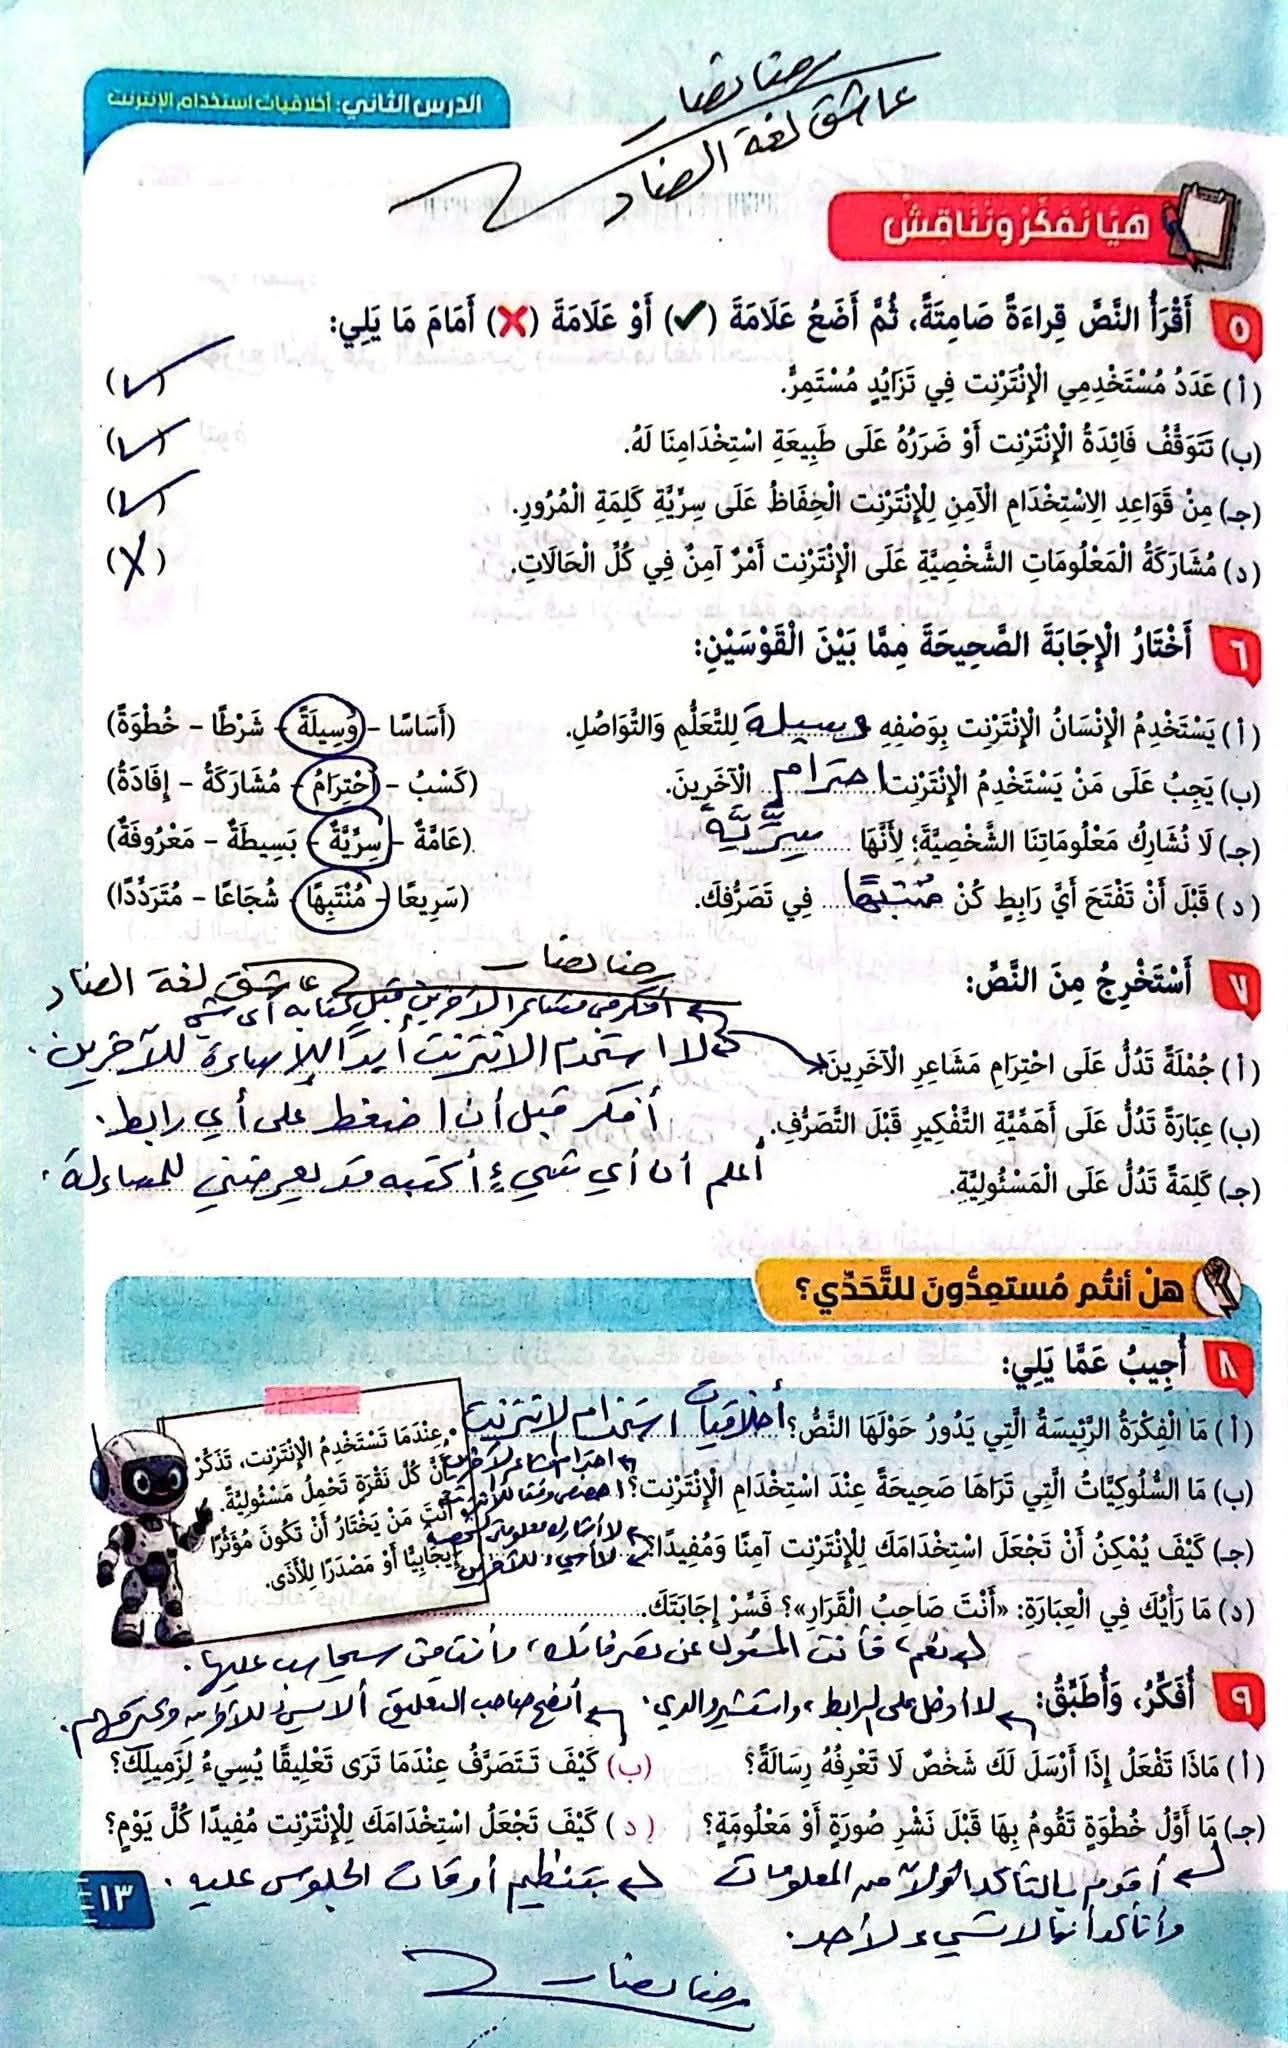 الدرس الثاني: أخلاقيات استخدام الإنترنت
رضا نصار
عاشق لغة الضاد
هَيَّا نُفَكِّرْ وَنُنَاقِشْ
٥ أَقْرَأُ النَّصَّ قِرَاءَةً صَامِتَةً، ثُمَّ أَضَعُ عَلَامَةَ (✓) أَوْ عَلَامَةَ (✗) أَمَامَ مَا يَلِي:
(أ) عَدَدُ مُسْتَخْدِمِي الْإِنْتَرْنِت فِي تَزَايُدٍ مُسْتَمِرٍّ. (✓)
(ب) تَتَوَقَّفُ فَائِدَةُ الْإِنْتَرْنِت أَوْ ضَرَرُهُ عَلَى طَبِيعَةِ اسْتِخْدَامِنَا لَهُ. (✓)
(جـ) مِنْ قَوَاعِدِ الِاسْتِخْدَامِ الْآمِنِ لِلْإِنْتَرْنِت الْحِفَاظُ عَلَى سِرِّيَّةِ كَلِمَةِ الْمُرُورِ. (✓)
(د) مُشَارَكَةُ الْمَعْلُومَاتِ الشَّخْصِيَّةِ عَلَى الْإِنْتَرْنِت أَمْرٌ آمِنٌ فِي كُلِّ الْحَالَاتِ. (X)
٦ أَخْتَارُ الْإِجَابَةَ الصَّحِيحَةَ مِمَّا بَيْنَ الْقَوْسَيْنِ:
(أ) يَسْتَخْدِمُ الْإِنْسَانُ الْإِنْتَرْنِت بِوَصْفِهِ وسيلة لِلتَّعَلُّمِ وَالتَّوَاصُلِ. (أَسَاسًا - وَسِيلَةً - شَرْطًا - خُطْوَةً)
(ب) يَجِبُ عَلَى مَنْ يَسْتَخْدِمُ الْإِنْتَرْنِت احترام الْآخَرِينَ. (كَسْبُ - احْتِرَامُ - مُشَارَكَةُ - إِفَادَةُ)
(جـ) لَا نُشَارِكُ مَعْلُومَاتِنَا الشَّخْصِيَّةَ؛ لِأَنَّهَا سِرِّيَّة (عَامَّةٌ - سِرِّيَّةٌ - بَسِيطَةٌ - مَعْرُوفَةٌ)
(د) قَبْلَ أَنْ تَفْتَحَ أَيَّ رَابِطٍ كُنْ منتبهًا فِي تَصَرُّفِكَ. (سَرِيعًا - مُنْتَبِهًا - شُجَاعًا - مُتَرَدِّدًا)
رضا نصار
عاشق لغة الضاد
٧ أَسْتَخْرِجُ مِنَ النَّصِّ:
أفكر في مشاعر الآخرين قبل كتابة أي شيء
(أ) جُمْلَةً تَدُلُّ عَلَى احْتِرَامِ مَشَاعِرِ الْآخَرِينَ. لا استخدم الانترنت أبدًا للإساءة للآخرين.
(ب) عِبَارَةً تَدُلُّ عَلَى أَهَمِّيَّةِ التَّفْكِيرِ قَبْلَ التَّصَرُّفِ. أفكر قبل أن اضغط على أي رابط.
(جـ) كَلِمَةً تَدُلُّ عَلَى الْمَسْئُولِيَّةِ. أعلم أن أي شيء أكتبه قد يعرضني للمساءلة.
هلْ أنتُم مُستعِدُّونَ للتَّحَدِّي؟
٨ أُجِيبُ عَمَّا يَلِي:
(أ) مَا الْفِكْرَةُ الرَّئِيسَةُ الَّتِي يَدُورُ حَوْلَهَا النَّصُّ؟ أخلاقيات استخدام الانترنت
(ب) مَا السُّلُوكِيَّاتُ الَّتِي تَرَاهَا صَحِيحَةً عِنْدَ اسْتِخْدَامِ الْإِنْتَرْنِت؟ احترام مشاعر الآخرين
اخصص وقتًا للانترنت
(جـ) كَيْفَ يُمْكِنُ أَنْ تَجْعَلَ اسْتِخْدَامَكَ لِلْإِنْتَرْنِت آمِنًا وَمُفِيدًا؟ لا أشارك معلوماتي الشخصية
لا أسيء للآخرين
(د) مَا رَأْيُكَ فِي الْعِبَارَةِ: «أَنْتَ صَاحِبُ الْقَرَارِ»؟ فَسِّرْ إِجَابَتَكَ.
نعم، فأنت المسئول عن تصرفاتك، وأنت من سيحاسب عليها.
عِنْدَمَا تَسْتَخْدِمُ الْإِنْتَرْنِت، تَذَكَّرْ
أَنَّ كُلَّ نَقْرَةٍ تَحْمِلُ مَسْئُولِيَّةً.
أَنْتَ مَنْ يَخْتَارُ أَنْ تَكُونَ مُؤَثِّرًا
إِيجَابِيًّا أَوْ مَصْدَرًا لِلْأَذَى.
٩ أُفَكِّرُ، وَأُطَبِّقُ:
لا أدخل على الرابط، واستشير والدي.
أنصح صاحب التعليق ألا يسيء للآخرين ويحترمهم.
(أ) مَاذَا تَفْعَلُ إِذَا أَرْسَلَ لَكَ شَخْصٌ لَا تَعْرِفُهُ رِسَالَةً؟ (ب) كَيْفَ تَتَصَرَّفُ عِنْدَمَا تَرَى تَعْلِيقًا يُسِيءُ لِزَمِيلِكَ؟
(جـ) مَا أَوَّلُ خُطْوَةٍ تَقُومُ بِهَا قَبْلَ نَشْرِ صُورَةٍ أَوْ مَعْلُومَةٍ؟ (د) كَيْفَ تَجْعَلُ اسْتِخْدَامَكَ لِلْإِنْتَرْنِت مُفِيدًا كُلَّ يَوْمٍ؟
أقوم بالتأكد أولًا من المعلومات
وأتأكد أنها لا تسيء لأحد.
بتنظيم أوقات الجلوس عليه.
١٣
رضا نصار